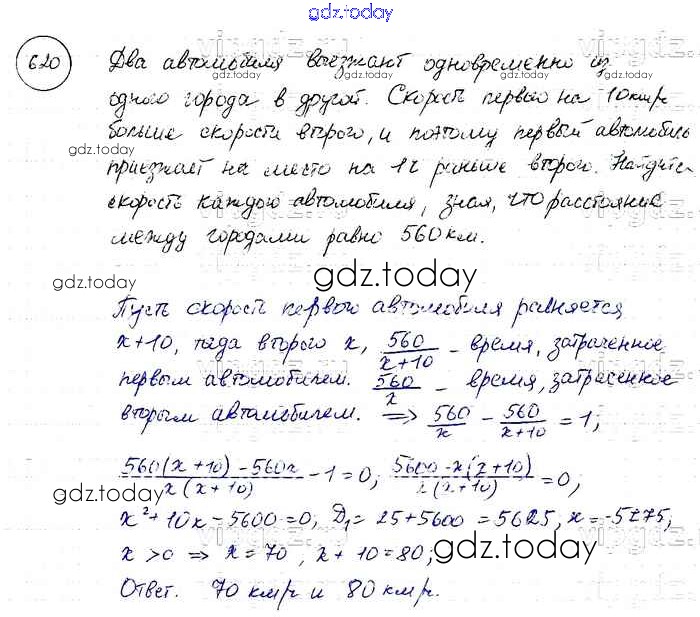 gdz.today
620
Два автомобиля выезжают одновременно из
одного города в другой. Скорость первого на 10 км/ч
больше скорости второго, и поэтому первый автомобиль
gdz.today
приезжает на место на 1ч раньше второго. Найдите
скорость каждого автомобиля, зная, что расстояние
между городами равно 560 км.
gdz.today
Пусть скорость первого автомобиля равняется
x+10, тогда второго x, 560/(x+10) - время, затраченное
первым автомобилем. 560/x - время, затраченное
вторым автомобилем. => 560/x - 560/(x+10) = 1;
(560(x+10)-560x)/(x(x+10)) - 1 = 0; (5600-x(x+10))/(x(x+10)) = 0;
gdz.today
x²+10x-5600=0; D₁=25+5600=5625, x=-5±75;
x>0 => x=70, x+10=80;
gdz.today
Ответ. 70 км/ч и 80 км/ч.